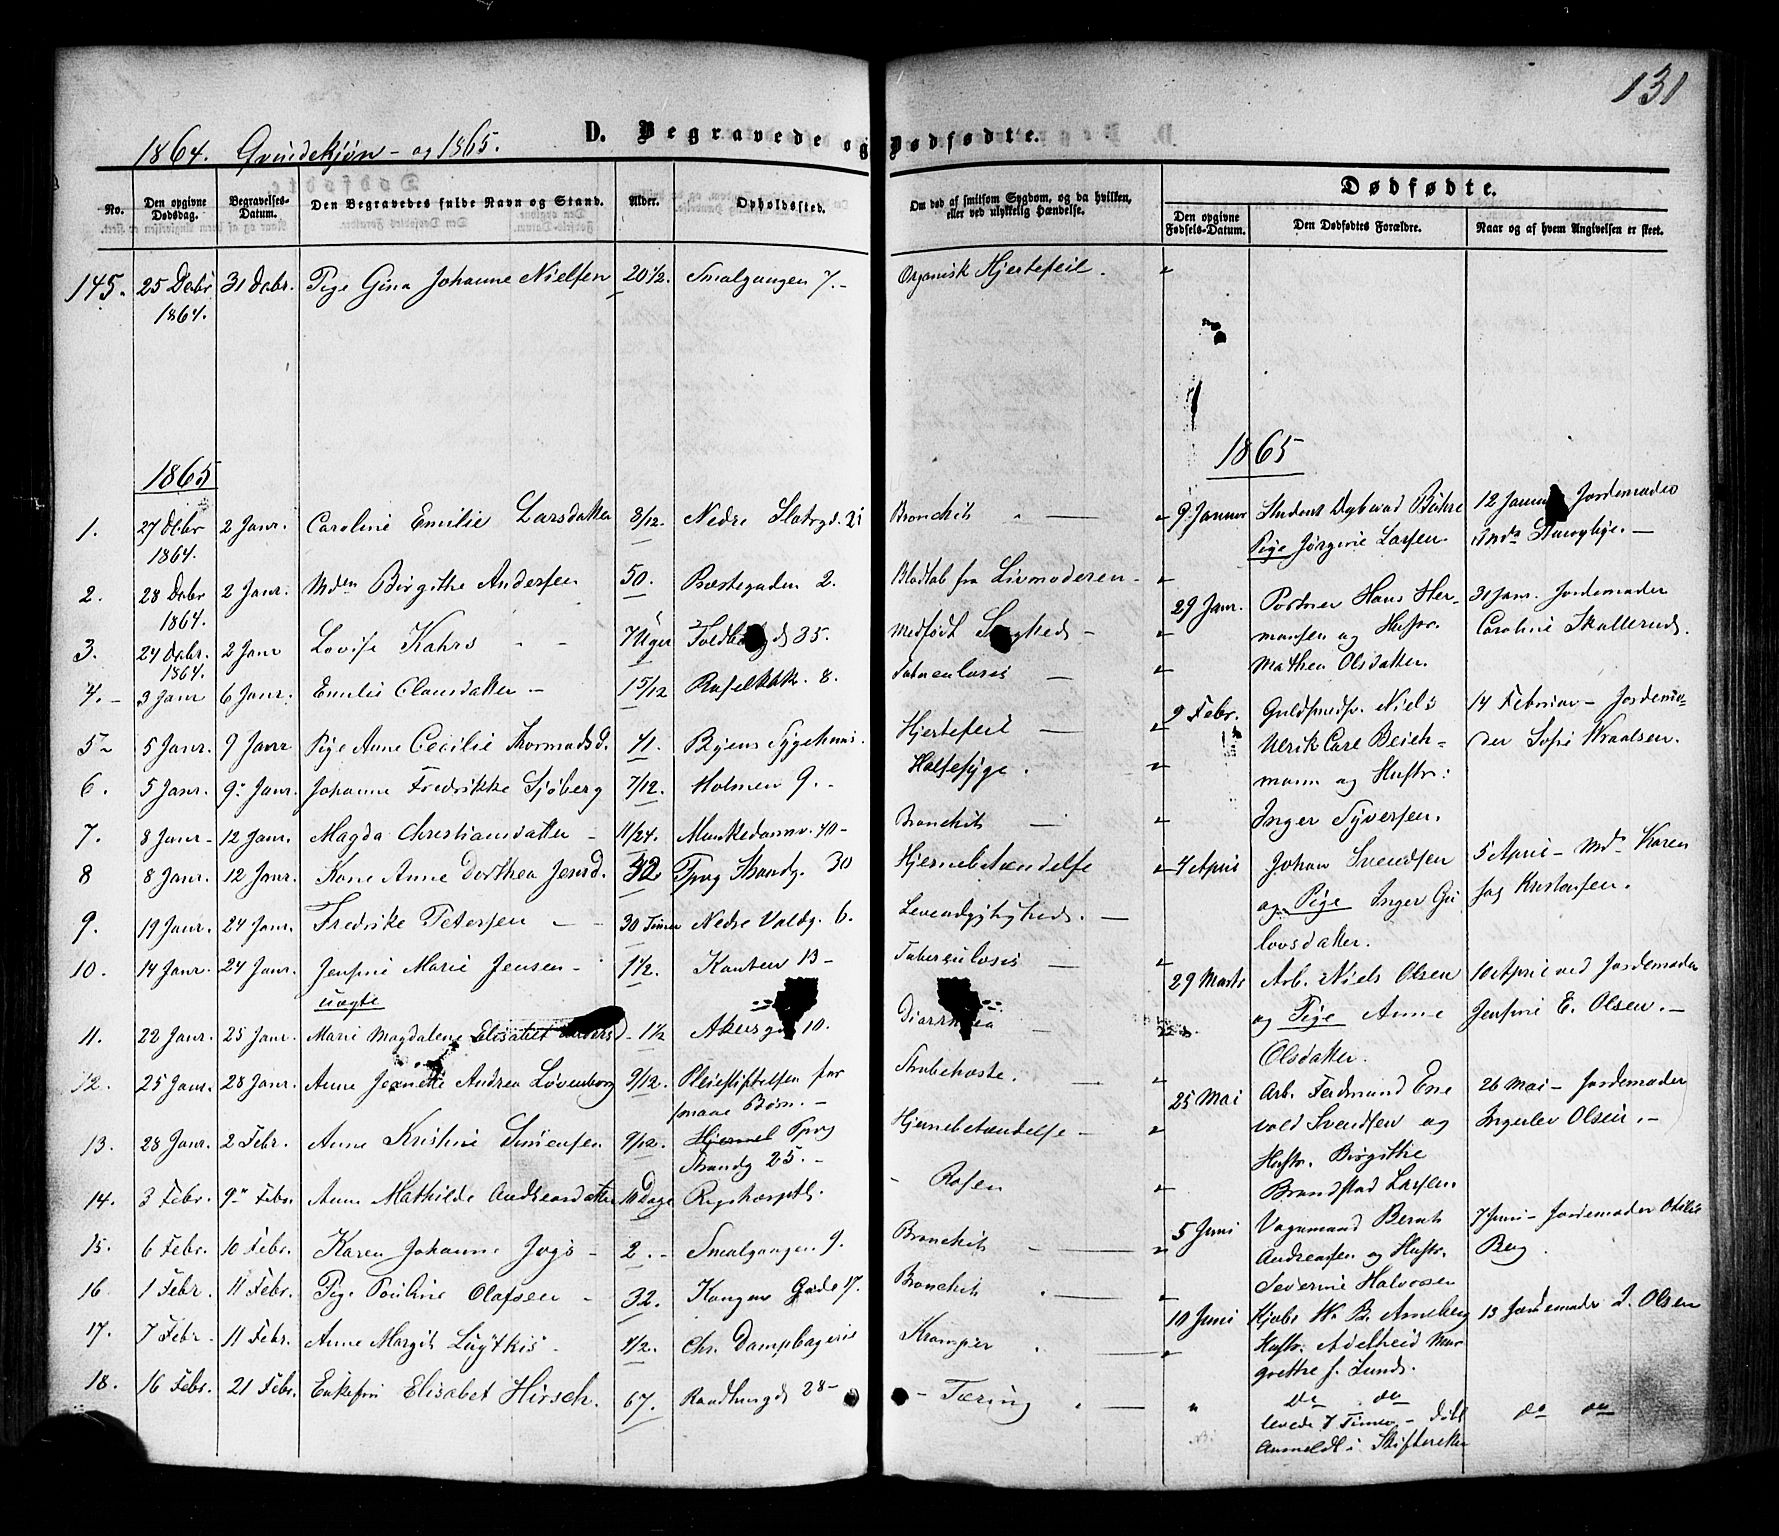 131
1864. Qvindekjøn - og 1865.
D. Begravede og Dødfødte.
Dødfødte.
No. Den opgivne Dødsdag. Begravelses-Datum. Den Begravedes fulde Navn og Stand. Alder. Opholdssted. Om død af smitsom Sygdom, og da hvilken, eller ved ulykkelig Hændelse. Den opgivne Fødsels-Datum. Den Dødfødtes Forældre. Naar og af hvem Angivelsen er skeet.
145. 25 Debr 1864. 31 Debr. Pige Gina Johanne Nielsen 20 1/2. Smalgangen 7. - Organisk Hjertefeil. "
1865
1. 27 Debr 1864. 2 Janr. Caroline Emilie Larsdatter 8/12. Nedre Slotsgd. 21 Bronchit "
2. 28 Debr 1864. 2 Janr. Mdm Birgithe Andersen 50. Præstegaden 2. Blodtab fra Livmoderen - "
3. 24 Debr. 1864. 2 Janr Lovise Kahrs 7 Uger 35. Medfødt - "
4. - 3 Janr 6 Janr. Emilie Olausdatter - 15/12 8. Tuberculosis - "
5 - 5 Janr. 9 Janr Pige Anne Cecilie 41. Byens Sygehuus. Hjertefeil - "
6. 5 Janr. 9 Janr. Johanne Fredrikke Sjøberg 7/12. Holmen 9. - Halsesyge. "
7. 8 Janr. - 12 Janr. Magda Christiansdatter - 11/24. Munkedamsv. 40 - Bronchit - "
8 8 Janr. 12 Janr. Kone Anne Dorthea Jensd. 32 Pprvg Strandg. 30 Hjernebetændelse "
9. 19 Janr. 24 Janr. Fredrike Petersen - 30 Timer Nedre Voldg. 6. -
10. 14 Janr. 24 Janr. Jensine Marie Jensen - 1 1/2. 13 - Tuberculosis - "
uægte
11. 22 Janr. 25 Janr. Marie Magdalene Elisabet - 1 1/2 Akersgd 10. Diarrhoea -
12. 25 Janr. 28 Janr. Anne Jeanette Andrea Løvenborg 9/12. Pleiestiftelsen for smaae Børn. - Strubehoste. "
13. 28 Janr. 2 Febr. Anne Kristine Simensen 9/12. Pprvg Strandg 25. - Hjernebetændelse - "
14. 3 Febr. 9 Febr. Anne Mathilde Andreasdatter 10 Dage Rigshospitl. - Rosen "
15. 6 Febr. 10 Febr. Karen Johanne - 2. - Smalgangen 9. Bronchit "
16. 1 Febr 11 Febr. Pige Pouline Olafsen - 32. Kongens Gade 17. Bronchit "
17. 7 Febr - 11 Febr. Anne Margit 1/2. Chr. Dampbageri Kramper "
18. 16 Febr. 21 Febr. Enkefru Elisabet Hirsch. 67. 28 - - Tæring "
1865
9 Januar Student
Pige Jørgine Larsen. 12 Januar Jordemoder
29 Janr. Portner Hans Her-
mansen og Hustr. 31 Janr. Jordemoder
Mathea Olsdatter. Caroline Skallerud.
9 Febr. Guldsmedsv. Niels
Ulrik Carl Beich-
mann og Hustr: 14 Februar - Jordemo-
Inger Syversen. der Sofie Kraalsen.
4 April Johan Svendsen
og Pige Inger Gu
lovsdatter. 5 April - Md. Karen
Kristensen.
29 Marts Arb. Niels Olsen
og Pige Anne
Olsdatter. 10 April ved Jordemoder
Jensine E. Olsen. -
25 Mai Arb. Ferdinand Ene
vold Svendsen og
Hustr. Birgithe
Brandstad Larsen 26 Mai - Jordemoder
Ingerlev Olsen. -
5 Juni Vognmand Bernt
Andreasen og Hustr.
Severine Halvorsen 7 Juni - Jordemoder Otilie
Berg.
10 Juni Kjøbm Arneberg
Hustr. Adelheid Mar
grethe f. Lund. 13 Jordemoder J. Olsen
" do do
levede 7 Timer - Død
anmeldt i Skifteretten do do